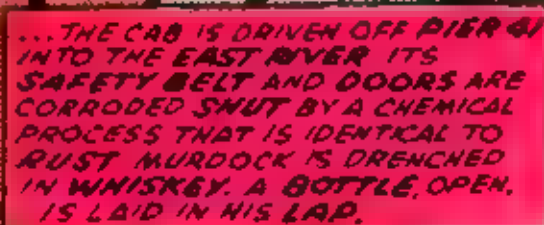 ...THE CAB IS DRIVEN OFF PIER
INTO THE EAST RIVER ITS
SAFETY BELT AND DOORS ARE
CORRODED SHUT BY A CHEMICAL
PROCESS THAT IS IDENTICAL TO
RUST MURDOCK IS DRENCHED
IN WHISKEY. A BOTTLE, OPEN,
IS LAID IN HIS LAP.